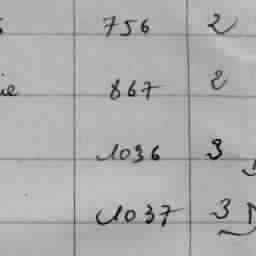 756 2
ie 867 2
1036 3
1037 3